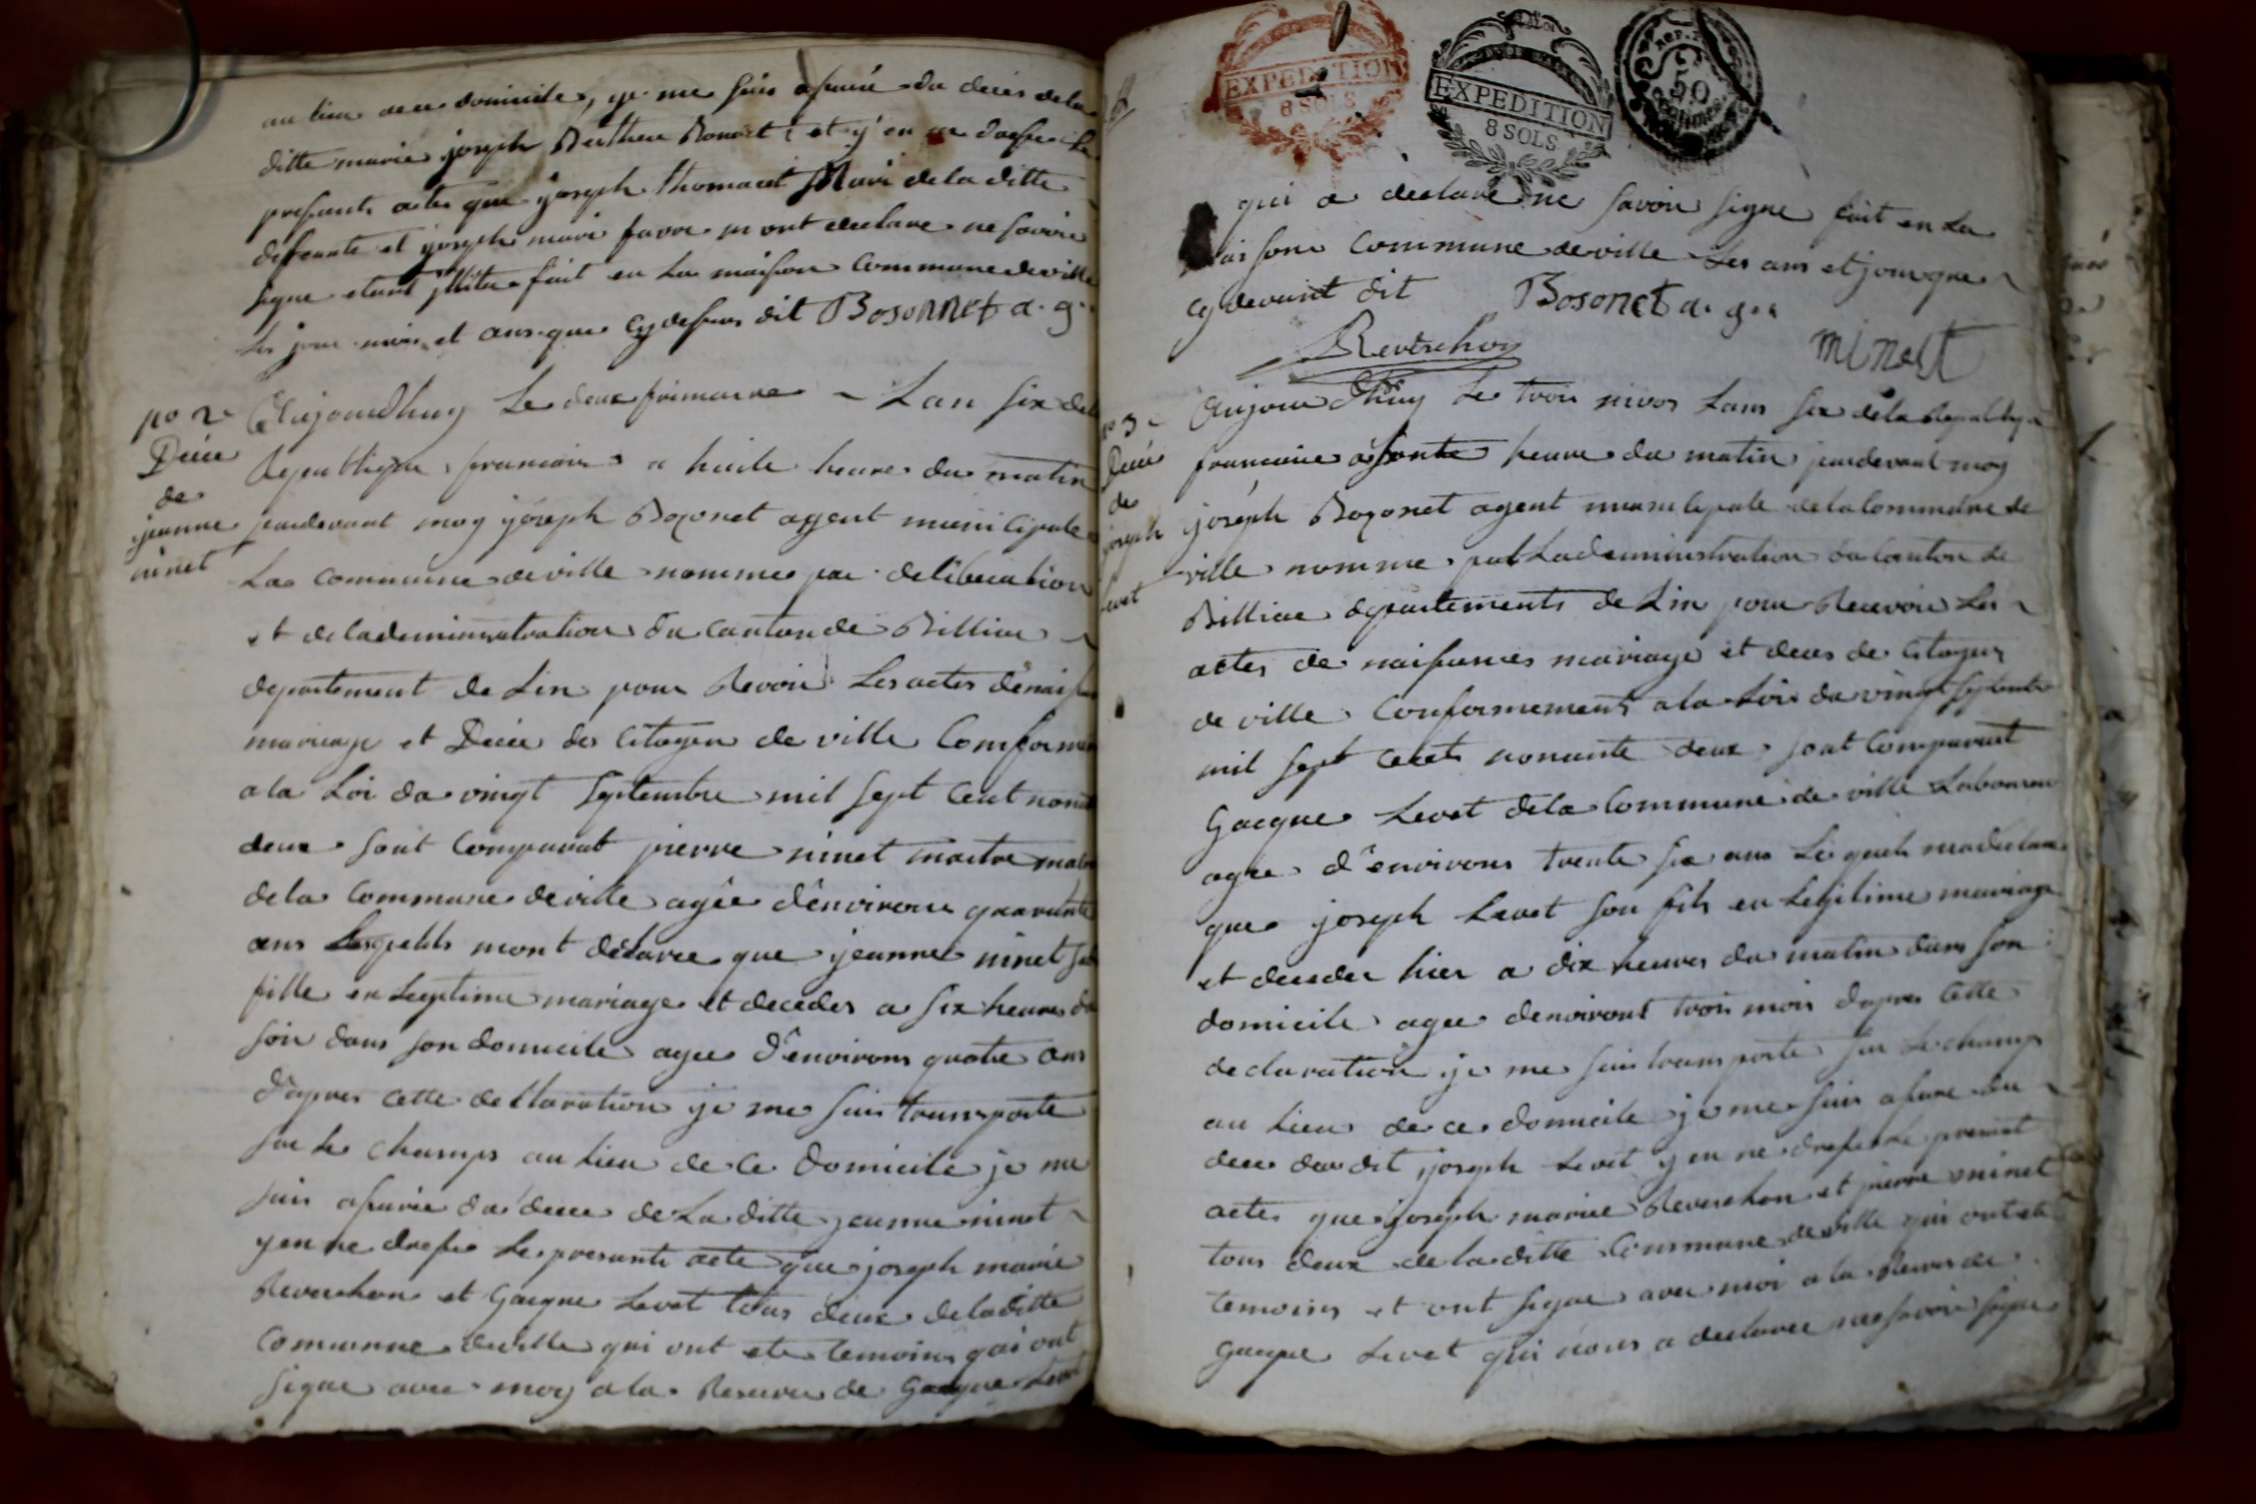 au lieu de ce domicile, je me suis asuré du deces dela
ditte marie joseph Berthere Bonnet et j'en ai dressé le
presents actes que joseph thomacet Mari dela ditte
defeunte et joseph marie favre m ont declare ne savoir
signe etant plitre fait en la maison Commune de ville
les jour mois et ans que cy desus dit Bosonnet a. g.
no 2
Décé
de
jeanne
ninet
Aujourdhuy Le deux frimaire ~ Lan six dela
Republique francaise a huite heure du matin
pardevant moy joseph Bozonet agent municipale
La commune de ville nomme par deliberation
et deladministration du canton de Billiat ~
departement de Lin pour Revoir Les actes de nais
mariage et Décé des Citoyen de ville Comformem
a la Loi du vingt septembre mil sept Cent nona
deux sont Comparut pierre ninet maitre
dela Commune de ville agée d'environs quarante
ans Lesquelds mont déclaree que jeanne ninet sa
fille en Legitime mariage et decedes a six heures du
soir dans son domicile agée d'environs quatre ans
d'apres cette declaration je me suis transporte
sur le champs au lieu de ce domicile je me
suis asurée du décé de la ditte jeanne ninet ~
j en ne dresse le presente acte que joseph marie
Reverchon et Gacque Levet tous deux dela ditte
Commune de ville qui ont ete temoins qui ont
signe avec moy a la Reserve de Gacque Levet
EXPEDITION
8 SOLS
EXPEDITION
8 SOLS
REP. F.
50
Centimes
qui a declare ne savoir signe fait en La
maison Commune de ville Les ans et jour que ~
cy devant dit Bosonet a. g.
Reverchon
minest
no 3
Décé
de
joseph
Levet
Aujourdhuy Le trois nivos Lans six dela Republique
francaise a sente heure du matin pardevant moy
joseph Bozonet agent municipale dela Commune de
ville nomme par Ladeministration du Canton de
Billiat departements de Lin pour Recevoir Les ~
actes de naisances mariage et deces de Citoyens
de ville Conformements a la Loi du vingt septembre
mil sept cents nonante deux sont Comparut
Gacque Levet dela Commune de ville Laboureur
agée d'environs trente six ans Lequels ma declare
que joseph Levet son fils en Legitime mariage
et deceder hier a dix heures du matin dans son
domicile agée denviront trois mois dapres Cette
declaration je me suis transporte sur Le champ
au Lieu de ce domicile je me suis asure du ~
décé du dit joseph Levet j en ne dresse Le present
actes que joseph marie Reverchon et pierre minet
tous deux de la ditte Commune de ville qui ont ete
temoins et ont signe avec moi a la Reserve de
Gacque Levet qui nous a declaree ne savoir signe